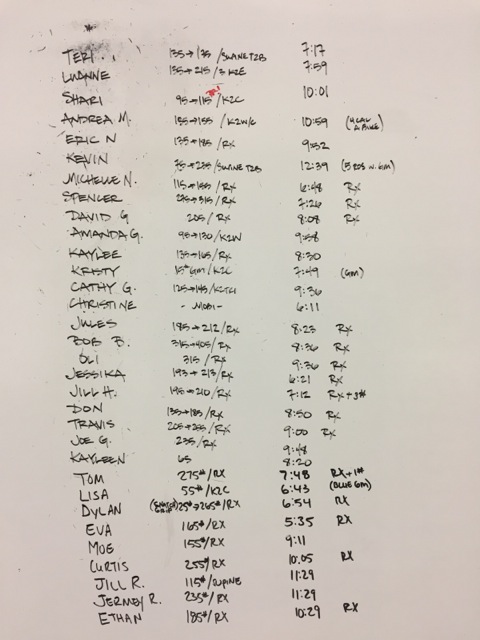 TERI 135→175 /SWINE T2B 7:17
LUANNE 135→215 /3 K2E 7:59
SHARI 95→115 /K2C 10:01
ANDREA M. 135→155 /K2W/C 10:59 (4 CAL A.BIKE)
ERIC N 135→185 /RX 9:52
KEVIN 75→225/SWINE T2B 12:39 (3 RDS W. GM)
MICHELLE N. 115→155 /RX 6:48 RX
SPENCER 275→315/RX 7:26 RX
DAVID G 205/RX 8:08 RX
AMANDA G. 95→130/K2W 9:58
KAYLEE 135→165/RX 8:30
KRISTY 15# GM/K2C 7:49 (GM)
CATHY G. 125→145/K2TCH 9:36
CHRISTINE - MOBI - 6:11
JULES 185→212/RX 8:23 RX
BOB B. 315→405/RX 8:36 RX
OLI 315 /RX 9:36 RX
JESSIKA 193→213/RX 6:21 RX
JILL H. 195→210/RX 7:12 RX+3#
DON 135→185/RX 8:50 RX
TRAVIS 205→255/RX 9:00 RX
JOE G. 235/RX 9:48
KAYLEEN 65 8:20
TOM 275#/RX 7:48 RX+1#
LISA 55#/K2C 6:43 (BLUE GM)
DYLAN 25#→265#/RX 6:54 RX
EVA 165#/RX 5:35 RX
MOE 155#/RX 9:11
CURTIS 255#/RX 10:05 RX
JILL R. 115#/SUPINE 11:29
JERMEY R. 235#/RX 11:29
ETHAN 185#/RX 10:29 RX